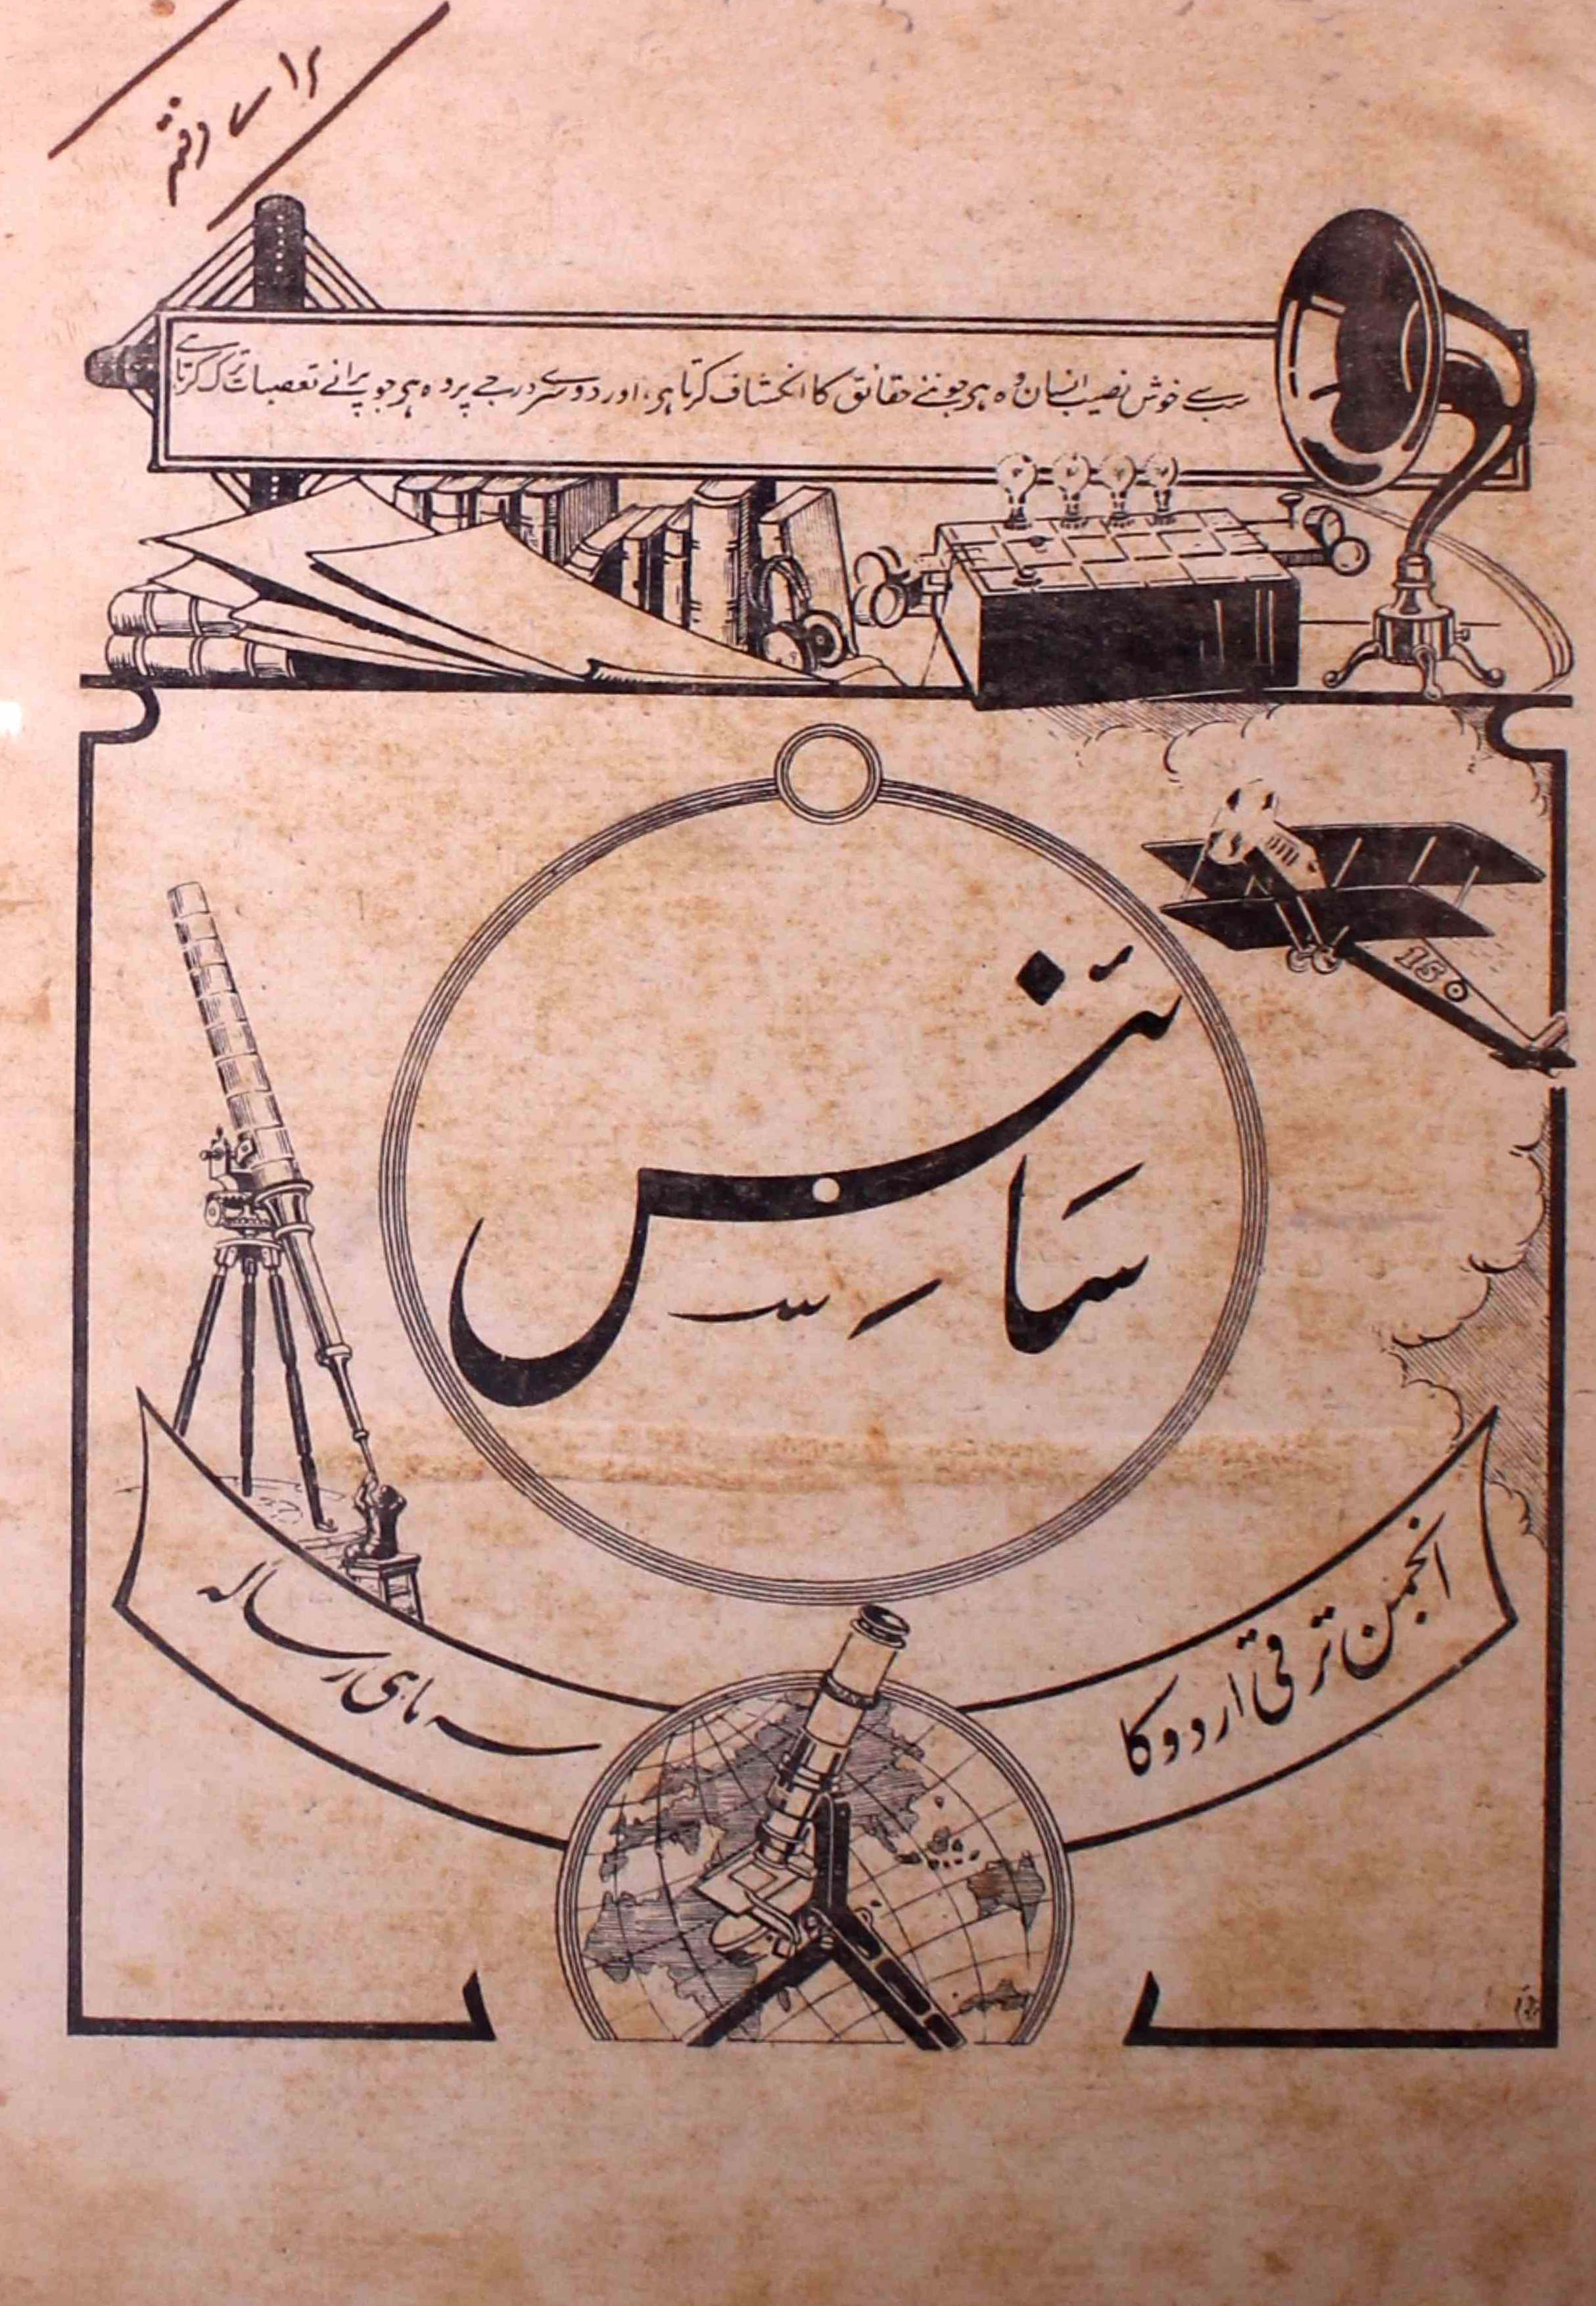 برائے دفتر
سب سے خوش نصیب انسان وہ ہی جو نئے حقائق کا انکشاف کرتا ہی، اور دوسرے درجے پر وہ ہی جو پرانے تعصبات ترک کرتا ہے
15
سائنس
انجمن ترقی اردو کا
سہ ماہی رسالہ